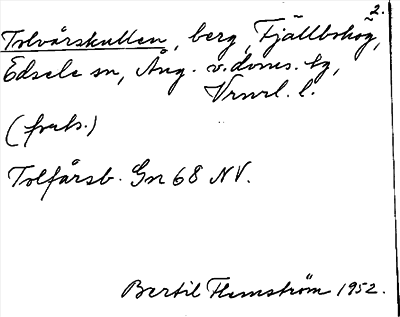 2.
Tolvårskullen, berg, Fjällbohög,
Edsele sn, Ång. v. doms. hg,
Vrnrl. l.
(frals.)
Tolfårsb. Gn 68 NV.
Bertil Flemström 1952.